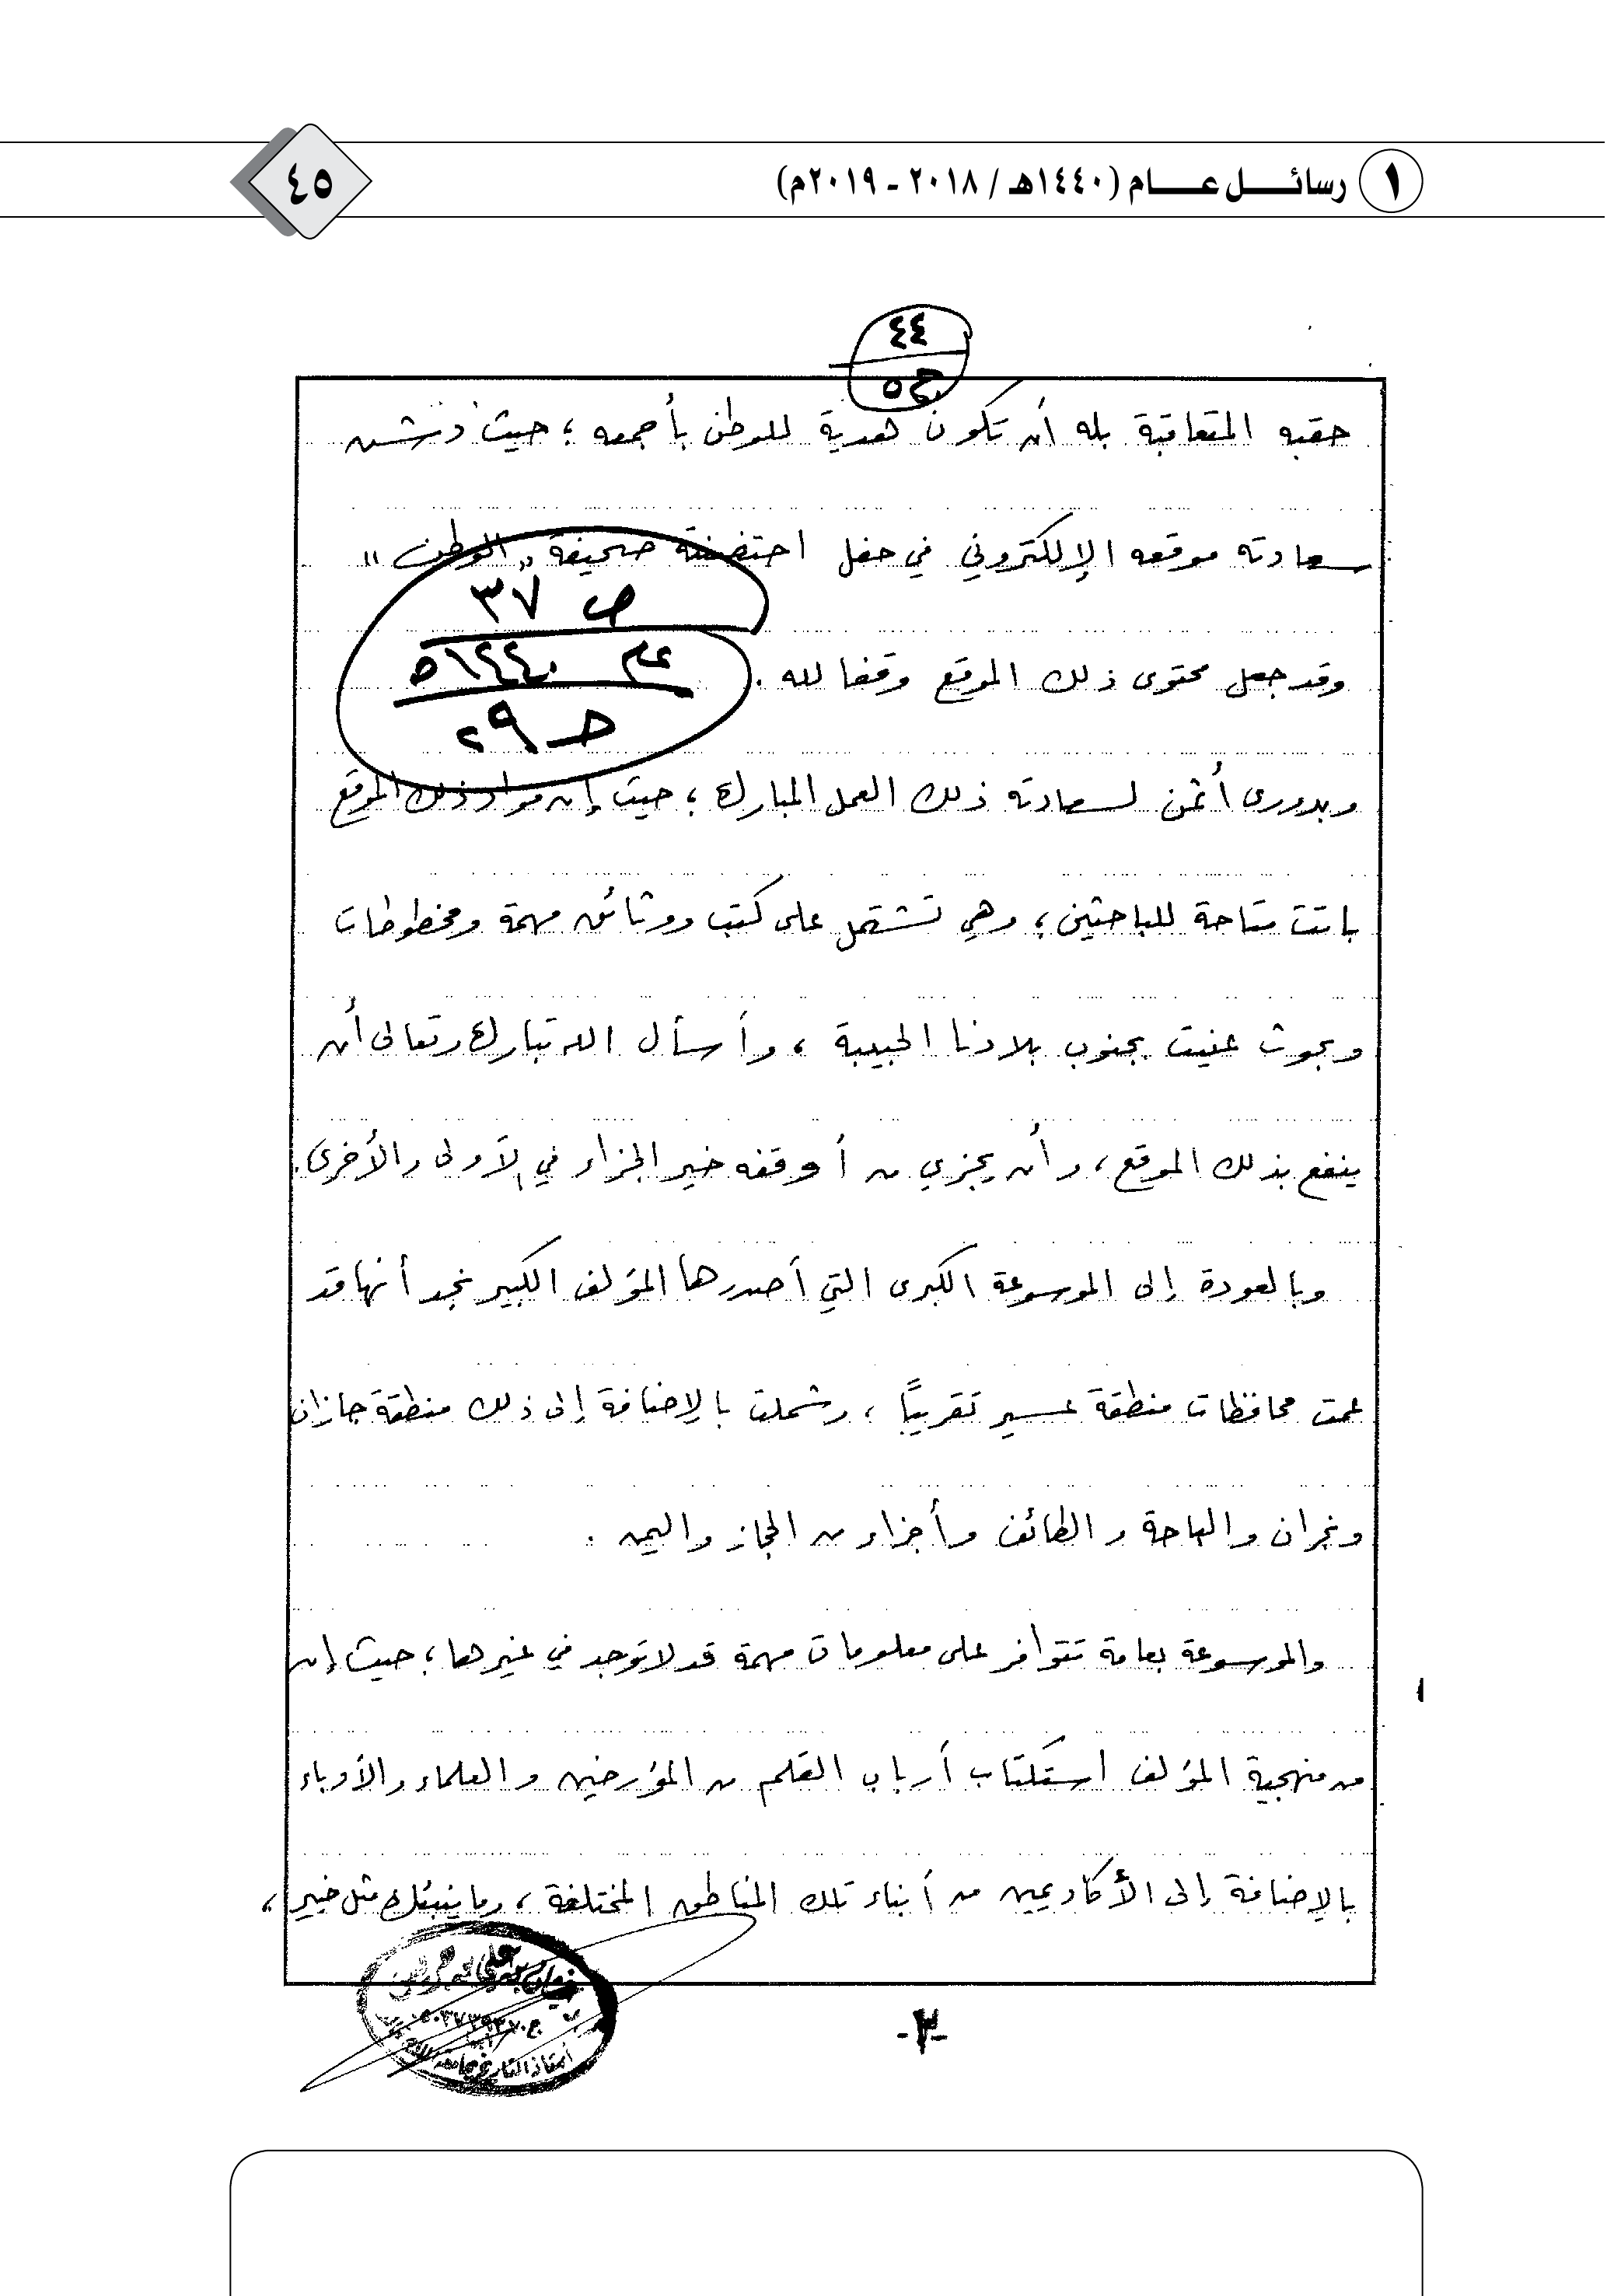 ١ رسائل عام (١٤٤٠هـ / ٢٠١٨ - ٢٠١٩م)
٤٥
٤٤
ج٥
حقبه المتعاقبة بله أن تكون هدية للوطن بأجمعه ؛ حيث دشن
سعادته موقعه الإلكتروني في حفل احتضنته صحيفة " الوطن "
ص ٣٧
عام ١٤٤٠هـ
وقد جعل محتوى ذلك الموقع وقفا لله .
وبدورى أثمن لسعادته ذلك العمل المبارك ؛ حيث إن مواد ذلك الموقع
باتت متاحة للباحثين ؛ وهي تشتمل على كتب ووثائق مهمة ومخطوطات
وبحوث عنيت بجنوب بلادنا الحبيبة ، وأسأل الله تبارك وتعالى أن
ينفع بذلك الموقع ، وأن يجزي من أوقفه خير الجزاء في الأولى والأخرى .
وبالعودة إلى الموسوعة الكبرى التي أصدرها المؤلف الكبير نجد أنها قد
عمت محافظات منطقة عسير تقريبًا ، وشملت بالإضافة إلى ذلك منطقة جازان
ونجران والباحة والطائف وأجزاء من الحجاز واليمن .
والموسوعة بعامة تتوافر على معلومات مهمة قد لا توجد في غيرها ؛ حيث إن
من منهجية المؤلف استكتاب أرباب القلم من المؤرخين والعلماء والأدباء
بالإضافة إلى الأكاديمين من أبناء تلك المناطق المختلفة ، وما ينبئك مثل خبير ،
-٣-
أستاذ التاريخ